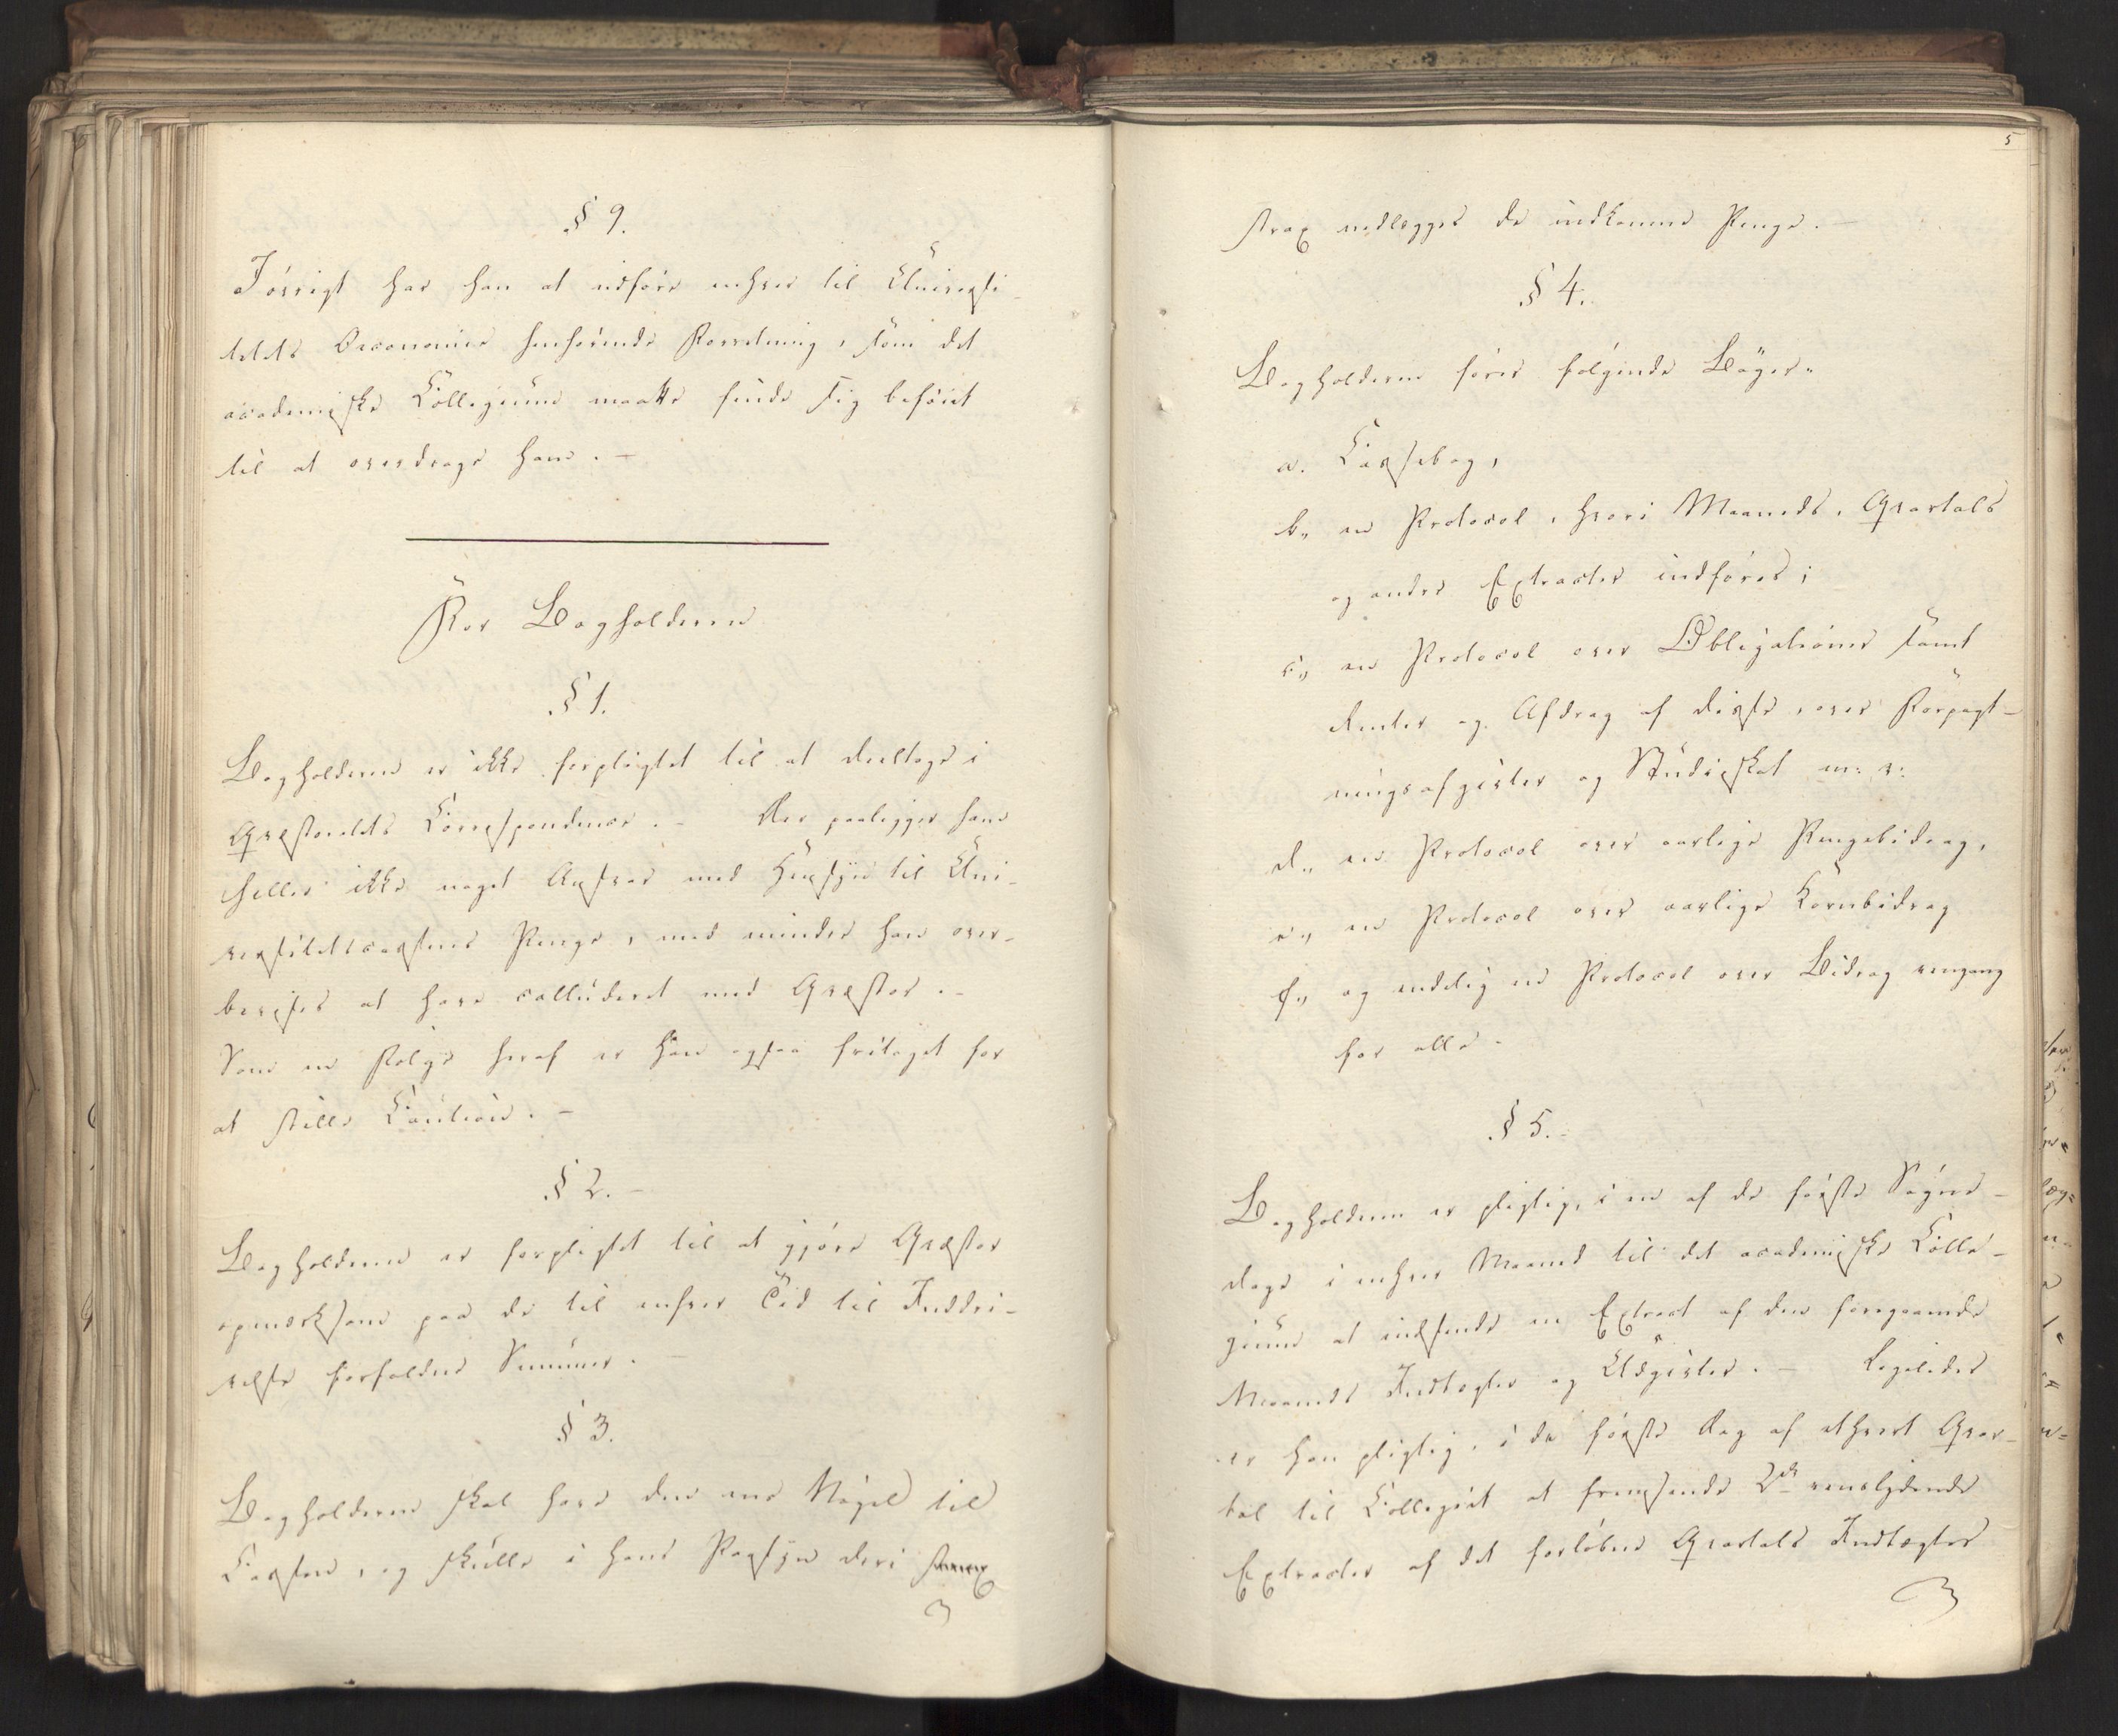 § 9.
Iøvrigt har han at udføre enhver til Universi-
tetets Oeconomie henhørende Forretning, som det
academiske Collegium maatte finde sig beføiet
til at overdrage ham. -
For Bogholderen
§ 1.
Bogholderen er ikke forpligtet til at deeltage i
Qvæstoratets Correspondence. - Der paaligger ham
heller ikke noget Ansvar med Hensyn til Uni-
versitetscassens Penge, med mindre han over-
bevises at have colluderet med Qvæstor. -
Som en Følge heraf er han ogsaa fritaget for
at stille Caution. -
§ 2. -
Bogholderen er forpligtet til at gjøre Qvæstor
opmærksom paa de til enhver Tid til Inddri-
velse forfaldne Summer. -
§ 3.
Bogholderen skal have den ene Nøgel til
Cassen, og skulle i hans Paasyn deri strax
5
strax nedlægges de indkomne Penge. -
§ 4.
Bogholderen fører følgende Bøger„
a. Cassebog,
b„ en Protocol, hvori Maaneds, Qvartals
og andre Extracter indføres;
c„ en Protocol over Obligationer samt
Renter og Afdrag af disse, over Forpagt-
ningsafgifter og Studieskat m: v:
d„ en Protocol over aarlige Pengebidrag,
e„ en Protocol over aarlige Kornbidrag
f„ og endelig en Protocol over Bidrag eengang
for alle. -
§ 5. -
Bogholderen er pligtig, i en af de første Søgne-
dage i enhver Maaned til det academiske Colle-
gium at indsende en Extract af den foregaaende
Maaneds Indtægter og Udgifter. - Ligeledes
er han pligtig, i de første Dag af ethvert Qvar-
tal til Collegiet at fremsende 2de eenslydende
Extracter af det forløbne Qvartals Indtægter